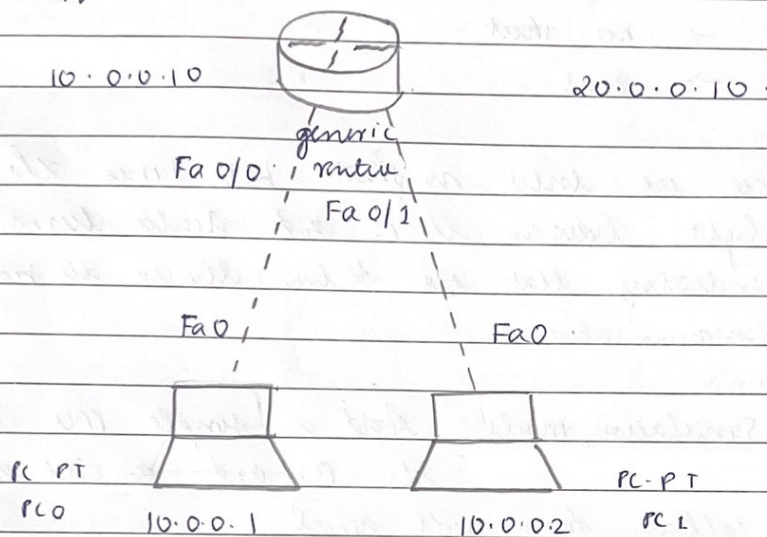 10.0.0.10
20.0.0.10
generic
router
Fa 0/0
Fa 0/1
Fa0
Fa0
PC PT
PC0
10.0.0.1
10.0.0.2
PC-PT
PC1